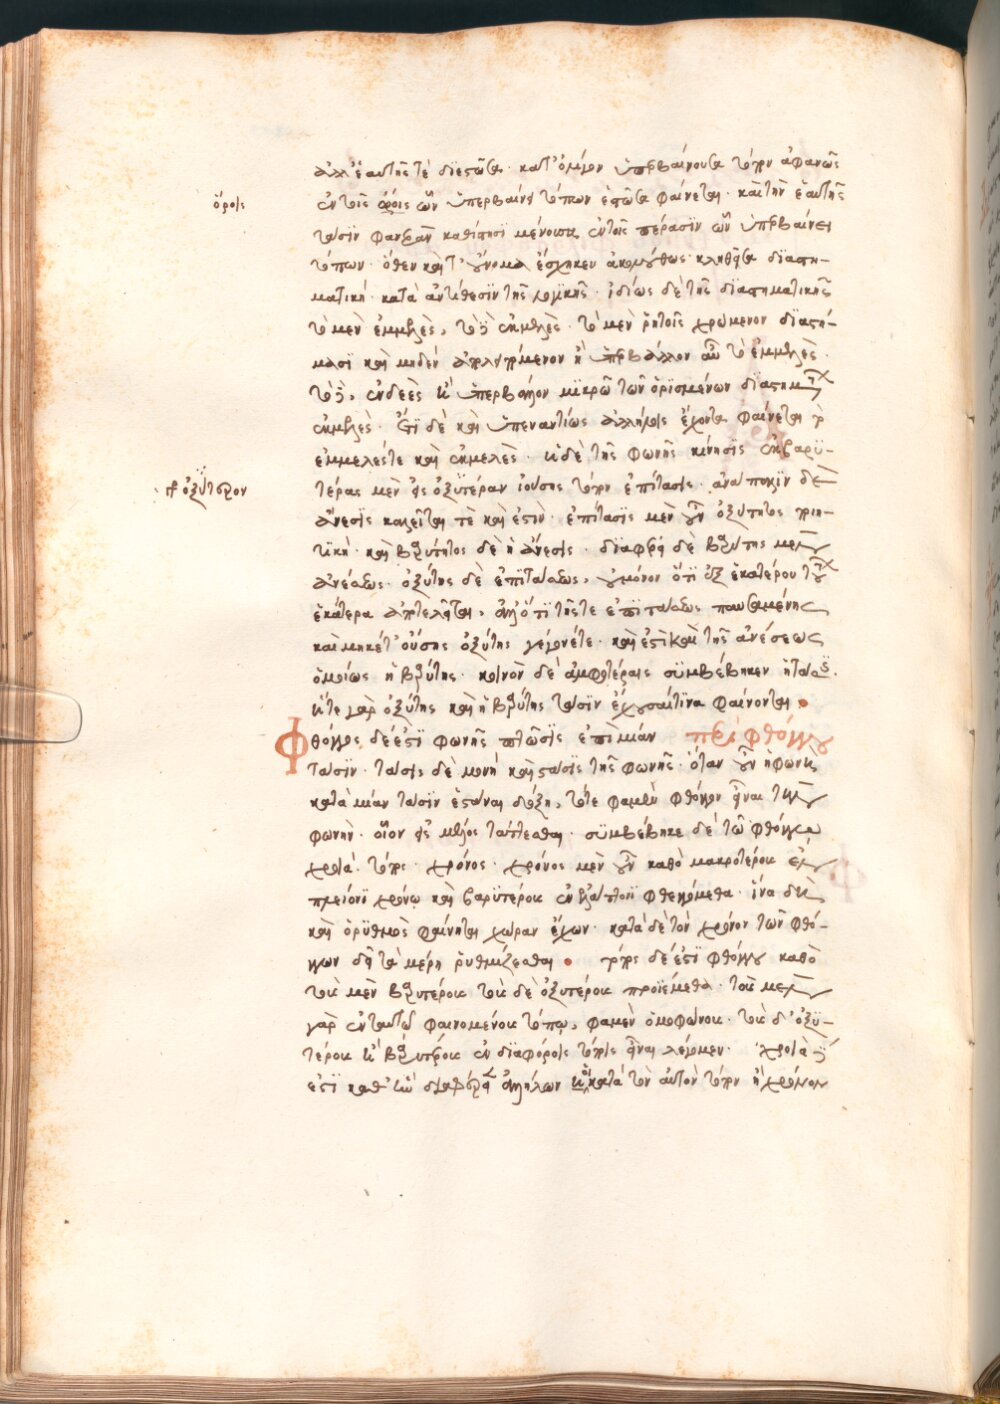 ἀλλ' ἑαυτῆς τὲ διεστῶσα· κατ' ὀλίγον ὑπερβαίνουσα τόπον ἀφανῶς
ὅροις
ἐν τοῖς ὅροις ὧν ὑπερβαίνει τόπων ἑστῶσα φαίνεται· καὶ τὴν ἑαυτῆς
τάσιν φανερὰν καθίστησι μένουσα ἐν τοῖς πέρασιν ὧν ὑπερβαίνει
τόπων· ὅθεν καὶ τ' οὔνομα ἔσχηκεν ἀκολούθως κληθεῖσα διαστη-
ματική· κατὰ ἀντίθεσιν τῆς λογικῆς· ἰδίως δὲ τῆς διαστηματικῆς
τὸ μὲν ἐμμελὲς, τὸ δὲ ἐκμελὲς· τὸ μὲν ῥητοῖς χρώμενον διαστή-
μασι καὶ μηδὲν ἀπολειπόμενον ἢ ὑπερβάλλον αὖ τὸ ἐμμελὲς·
τὸ δὲ, ἐνδεὲς ἢ ὑπερβάλλον μικρῶ τῶν ὡρισμένων διαστημάτων
ἐκμελὲς· ἔτι δὲ καὶ ὑπεναντίως ἀλλήλοις ἔχοντα φαίνεται τὸ
ἐμμελέστε καὶ ἐκμελὲς· ἡ δὲ τῆς φωνῆς κίνησις ἐκ βαρυ-
τέρας μὲν εἰς ὀξυτέραν ἰούσης τόπον ἐπίτασις· ἀνάπαλιν δὲ
ὀξύτερον
ἄνεσις καλεῖται τὲ καὶ ἐστὶν· ἐπίτασις μὲν οὖν ὀξύτητος ποιη-
τικὴ· καὶ βαρύτητος δὲ ἡ ἄνεσις· διαφέρει δὲ βαρύτης μὲν
ἀνέσεως· ὀξύτης δὲ ἐπιτάσεως, οὐ μόνον ὅτι ἐξ ἑκατέρου τούτων
ἑκάτερα ἀποτελεῖται, ἀλλ' ὅτι τῆς τε ἐπιτάσεως παυσαμένης
καὶ μηκέτ' οὔσης ὀξύτης γέγονέτε· καὶ ἔστι καὶ τῆς ἀνέσεως
ὁμοίως ἡ βαρύτης· κοινὸν δὲ ἀμφοτέραις συμβέβηκεν ἡ τάσις.
ἥτε γὰρ ὀξύτης καὶ ἡ βαρύτης τάσιν ἔχουσαί τινα φαίνονται.
Φθόγγος δέ ἐστι φωνῆς πτῶσις ἐπὶ μίαν περὶ φθόγγου
τάσιν· τάσις δὲ μονὴ καὶ στάσις τῆς φωνῆς· ὅταν οὖν ἡ φωνὴ
κατὰ μίαν τάσιν ἑστάναι δόξη, τότε φαμὲν φθόγγον εἶναι τὴν
φωνὴν· οἷον εἰς μέλος τάττεσθαι· συμβέβηκε δὲ τῶ φθόγγω
χροιά· τόπος· χρόνος· χρόνος μὲν οὖν καθὸ μακροτέρους ἐν
πλείονι χρόνω καὶ βαρυτέρους ἐν ἐλάττονι φθεγγόμεθα· ἵνα δὴ
καὶ ὁ ῥυθμὸς φαίνηται χώραν ἔχων· κατὰ δὲ τὸν χρόνον τῶν φθό-
γγων δεῖ τὰ μέρη ῥυθμίζεσθαι. τόπος δέ ἐστι φθόγγου καθὸ
τοὺς μὲν βαρυτέρους τοὺς δὲ ὀξυτέρους προϊέμεθα· τοὺς μὲν
γὰρ ἐν ταυτῶ φαινομένους τόπω, φαμὲν ὁμοφώνους· τοὺς δ' ὀξυ-
τέρους ἢ βαρυτέρους ἐν διαφόροις τόποις εἶναι λέγομεν· χροιὰ δέ
ἐστι καθ' ἣν διαφέροιεν ἀλλήλων οἱ κατὰ τὸν αὐτὸν τόπον ἢ χρόνον